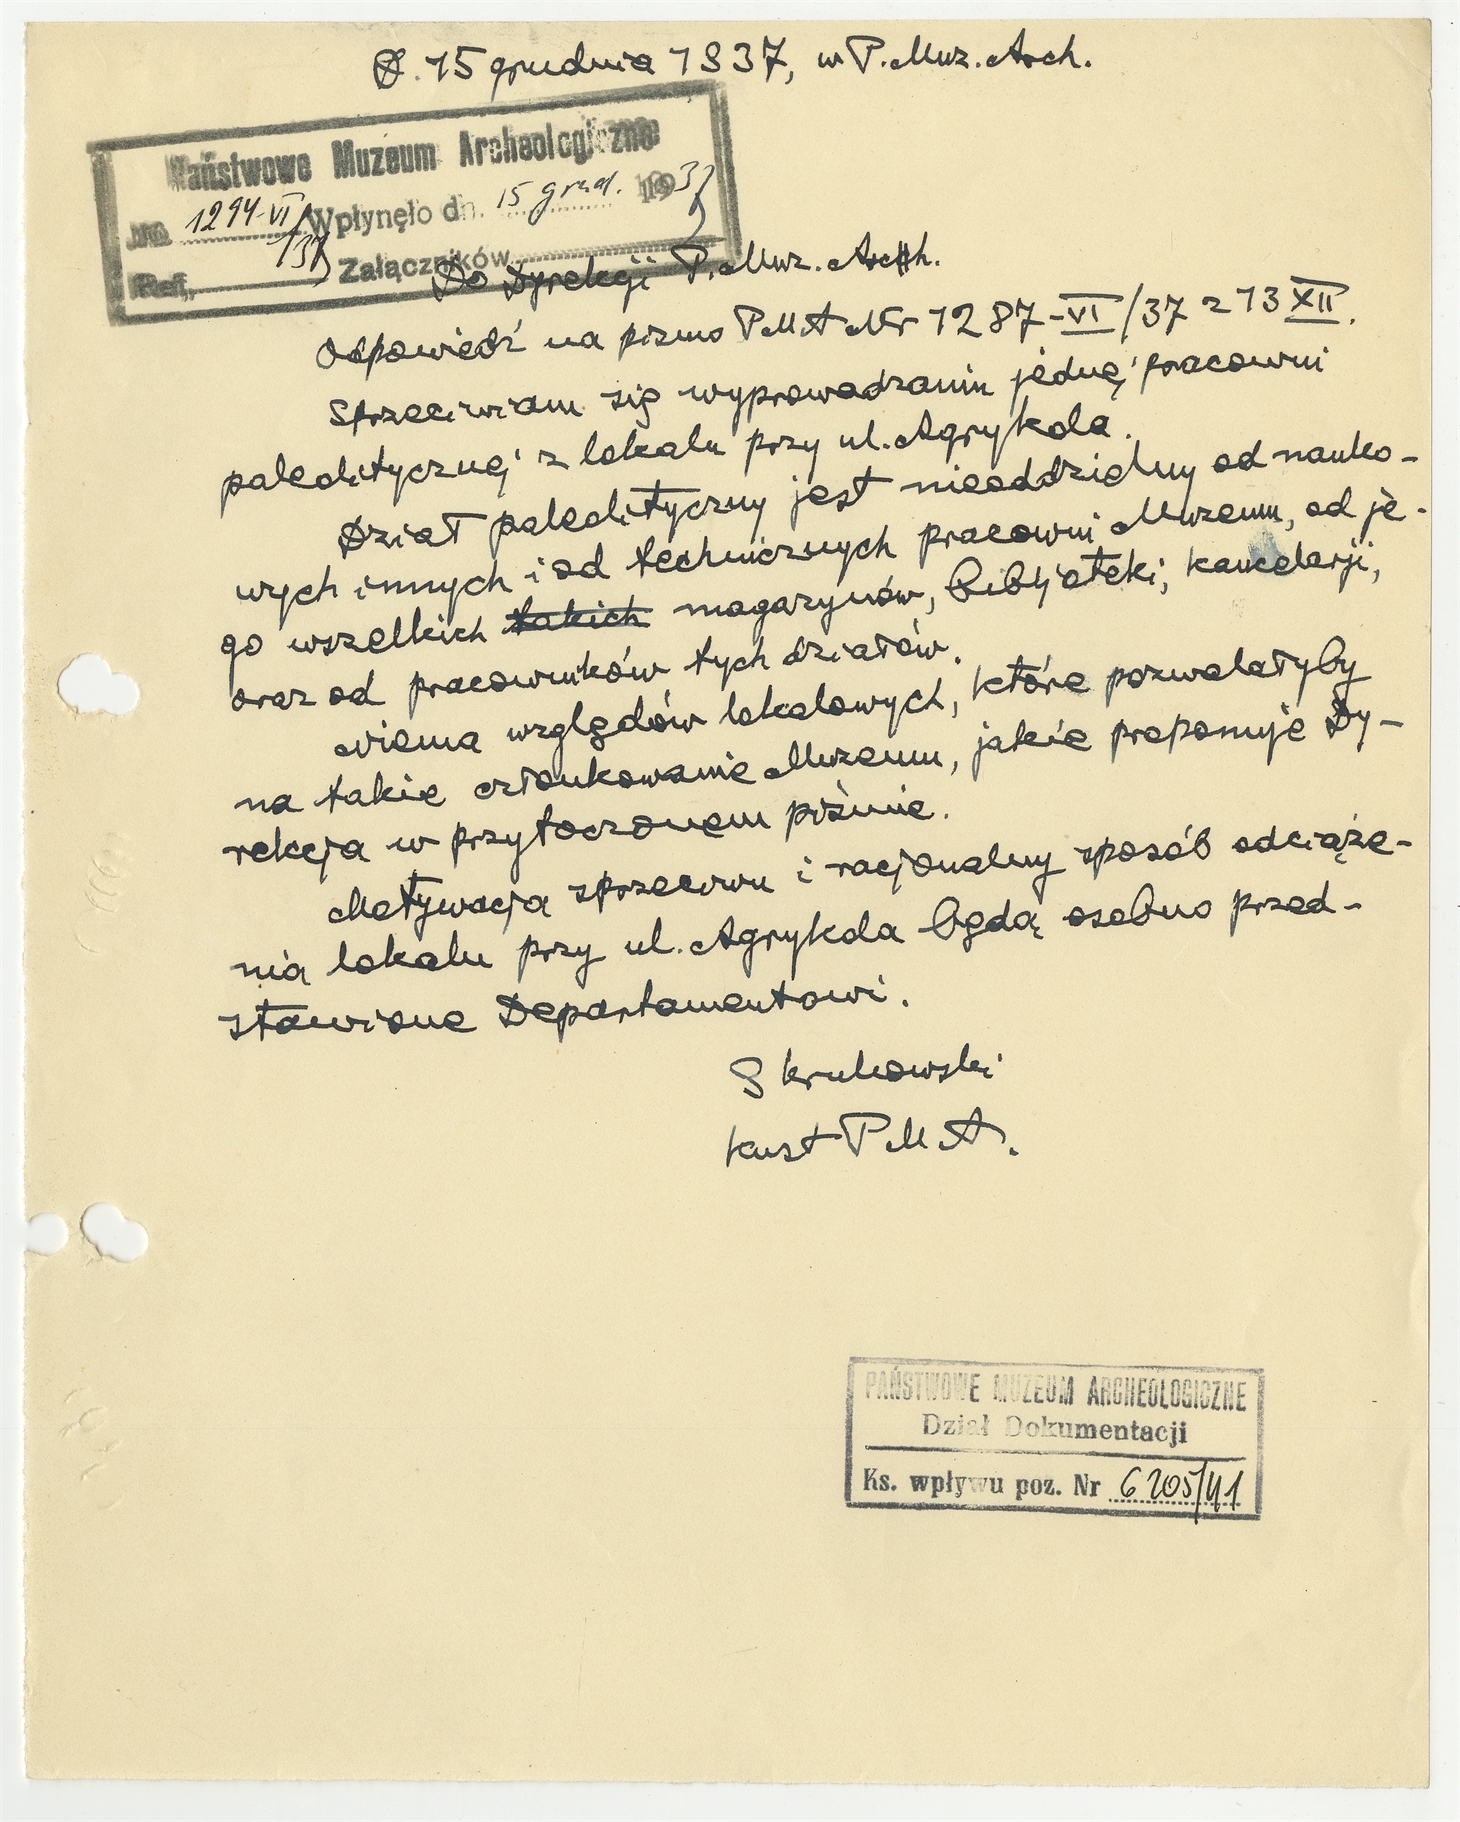 D. 15 grudnia 1937, w P. Muz. Arch.
Państwowe Muzeum Archeologiczne
No. 1294-VI/37 Wpłynęło dn. 15 grud. 1937
Ref. Załączników
Do Dyrekcji P. Muz. Arch.
Odpowiedź na pismo PMA Nr 1287-VI/37 z 13 XII.
Sprzeciwiam się wyprowadzaniu jednej pracowni
paleolitycznej z lokalu przy ul. Agrykola.
Dział paleolityczny jest nieoddzielny od nauko-
wych innych i od technicznych pracowni Muzeum, od je-
go wszelkich takich magazynów, bibljoteki, kancelarji,
oraz od pracowników tych działów.
Niema względów lokalowych, które pozwalałyby
na takie członkowanie Muzeum, jakie proponuje Dy-
rekcja w przytoczonem piśmie.
Motywacja sprzeciwu i racjonalny sposób odciąże-
nia lokalu przy ul. Agrykola będą osobno przed-
stawione Departamentowi.
S Krukowski
kust PMA.
PAŃSTWOWE MUZEUM ARCHEOLOGICZNE
Dział Dokumentacji
Ks. wpływu poz. Nr 6205/41